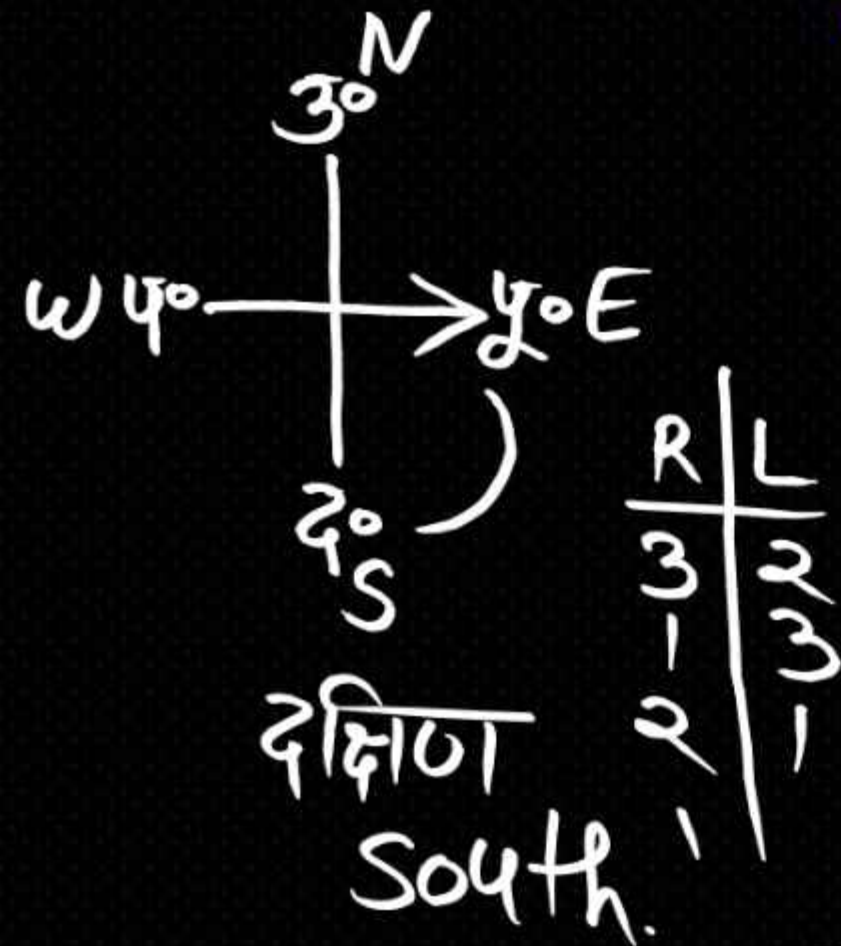 N
उ०
W प० पू० E
द०
S
R L
3 2
1 3
2 1
1
दक्षिण
South.